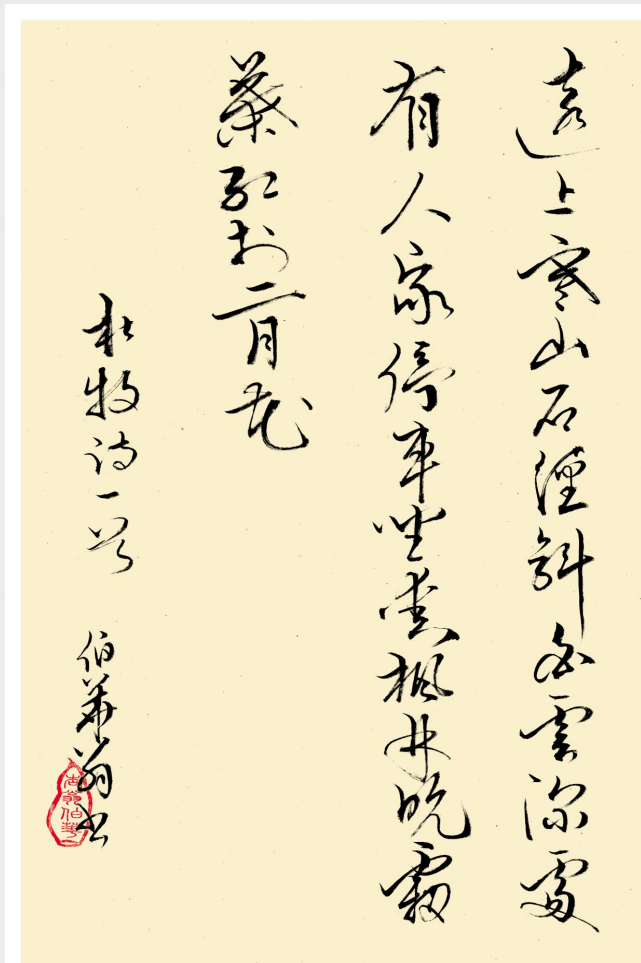 遠上寒山石徑斜白雲深處
有人家停車坐愛楓林晚霜
葉紅於二月花
杜牧诗一首
伯華翁书